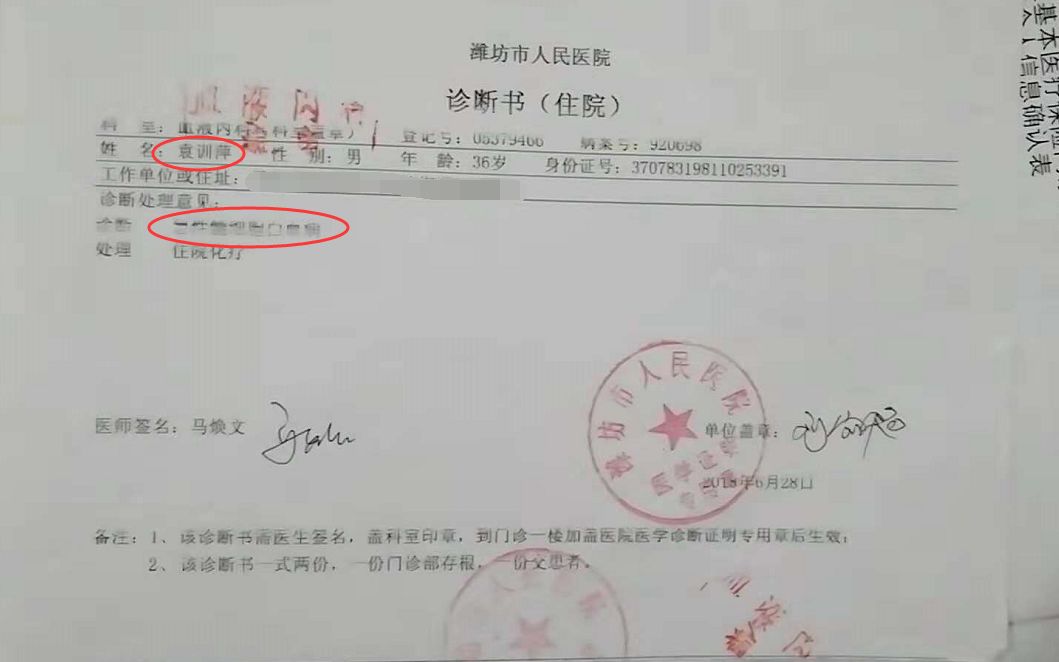 潍坊市人民医院
诊断书（住院）
血液内
科 室：血液内科（科室盖章） 登记号：05379466 病案号：920698
姓 名：袁训萍 性 别：男 年 龄：36岁 身份证号：370783198110253391
工作单位或住址：
诊断处理意见：
诊断 性髓细胞白血病
处理 住院化疗
潍坊市人民医院
医师签名：马焕文 单位盖章：
2018年6月28日
备注：1、该诊断书需医生签名，盖科室印章，到门诊一楼加盖医院医学诊断证明专用章后生效；
2、该诊断书一式两份，一份门诊部存根，一份交患者。
基本医疗保险
信息确认表